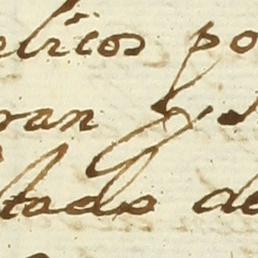 elicos po
ran y
tado de